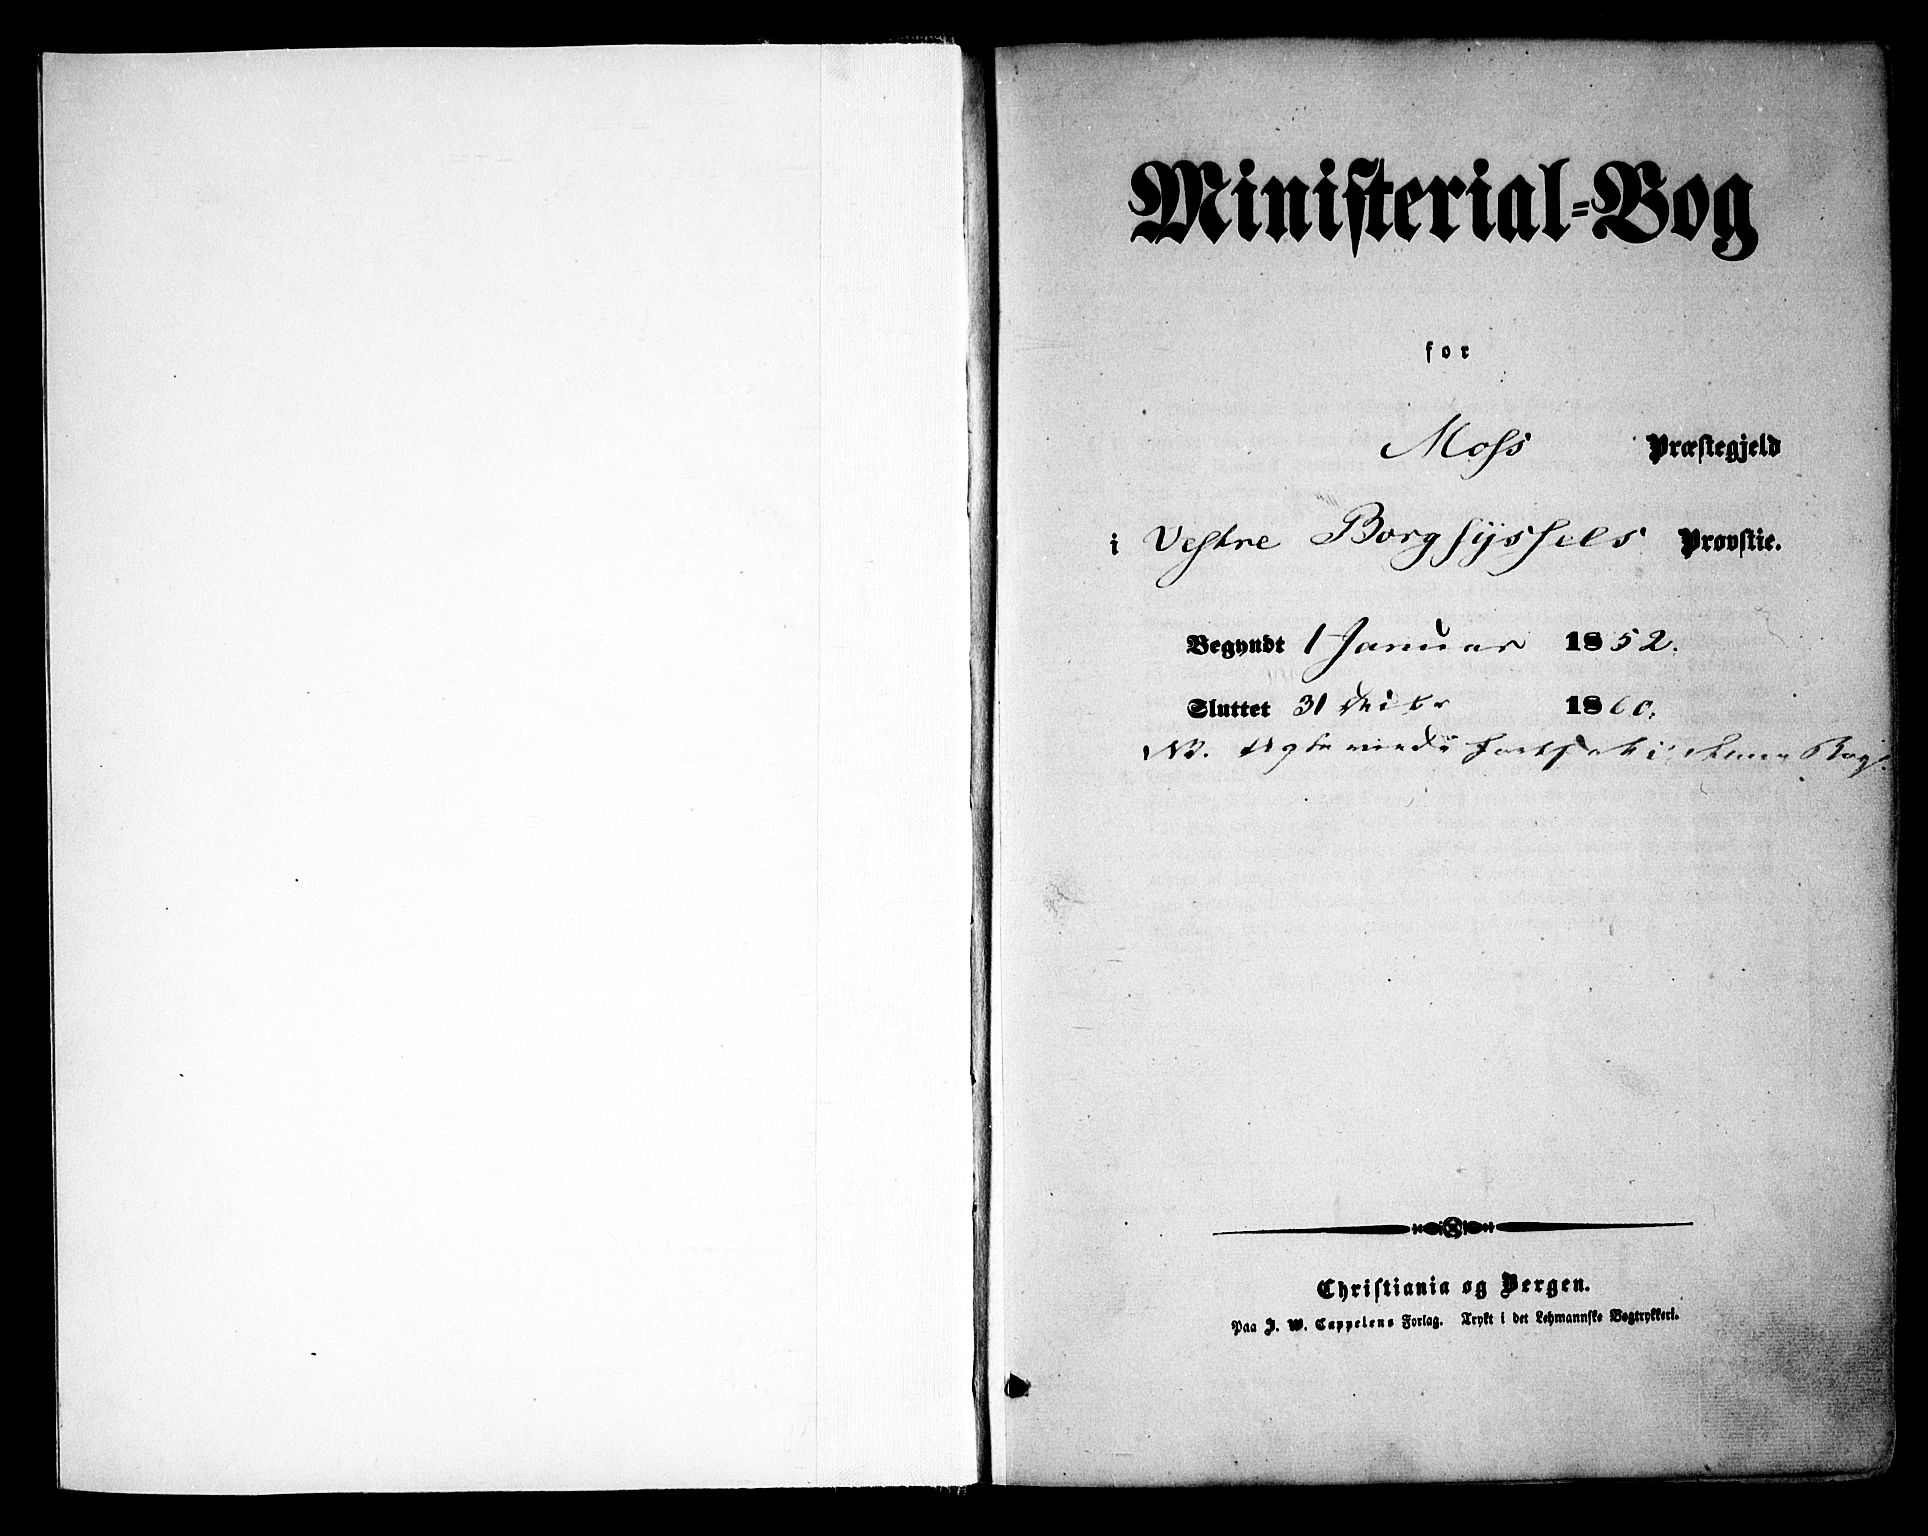 Ministerial-Bog
for
Moss Præstegjeld
i Vestre Borgsyssels Provstie.
Begyndt 1 Januar 1852.
Sluttet 31 1860.
NB. Bog.
Christiania og Bergen.
Paa J. W. Cappelens Forlag. Trykt i det Lehmannske Bogtrykkeri.